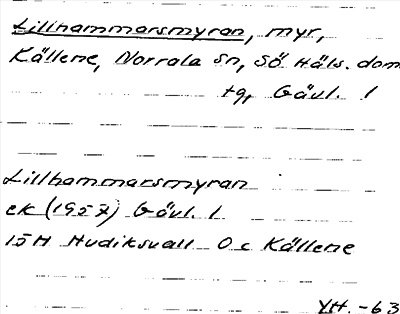 Lillhammarsmyran, myr,
Källene, Norrala sn, Sö Häls. dom
tg, Gävl. l
Lillhammarsmyran
ek (1957) Gävl. l
15H Hudiksvall 0 c Källene
YH. -63